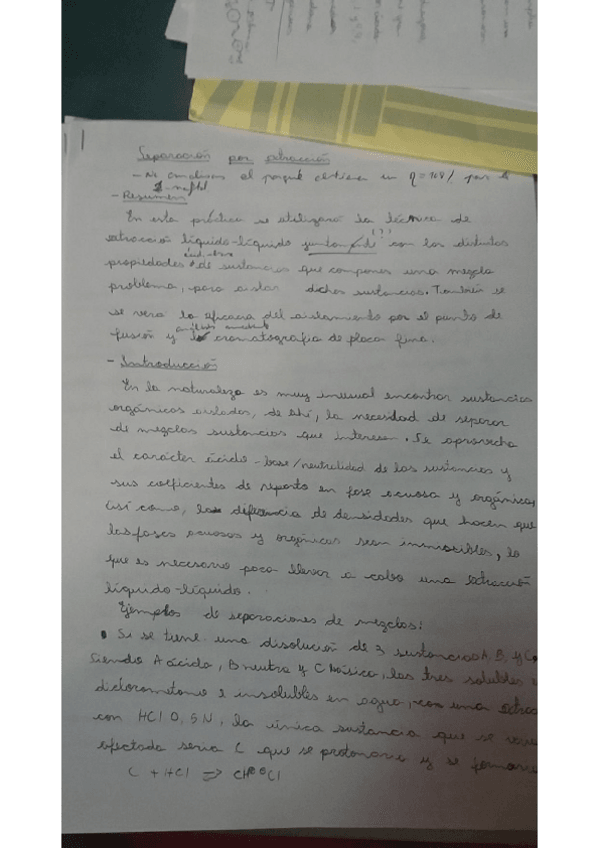 Separación por extracción
- No analizas el porqué obtienen un η = 168% para el
2-naftol
- Resumen
En esta práctica se utilizará la técnica de
(?)
extracción líquido-líquido junto con las distintas
ácid.-base
propiedades de sustancias que componen una mezcla
problema, para aislar dichas sustancias. También se
se verá la eficacia del aislamiento por el punto de
fusión y la cromatografía de placa fina.
- Introducción
En la naturaleza es muy inusual encontrar sustancias
orgánicas aisladas, de ahí, la necesidad de separar
de mezclas sustancias que interesen. Se aprovecha
el carácter ácido-base/neutralidad de las sustancias y
sus coeficientes de reparto en fase acuosa y orgánica,
así como, la diferencia de densidades que hacen que
las fases acuosas y orgánicas sean inmiscibles, lo
que es necesario para llevar a cabo una extracción
líquido-líquido.
Ejemplos de separaciones de mezclas:
• Si se tiene una disolución de 3 sustancias A, B, y C,
siendo A ácida, B neutra y C básica, las tres solubles
diclorometano e insolubles en agua, con una
con HCl 0,5N, la única sustancia que se
afectada sería C que se protonaría y se
C + HCl ⇒ CH⊕⊖Cl